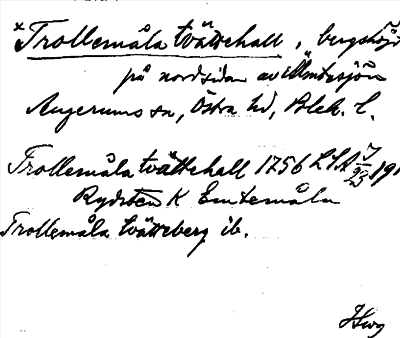 * Trollemåla tvättehall, bergshöjd
på nordsidan av Älmtesjön
Augerums sn, Östra hd, Blek. l.
Trollemåla tvättehall 1756 LSA
Rydsten K Emtemåla
Trollemåla tvätteberg ib.